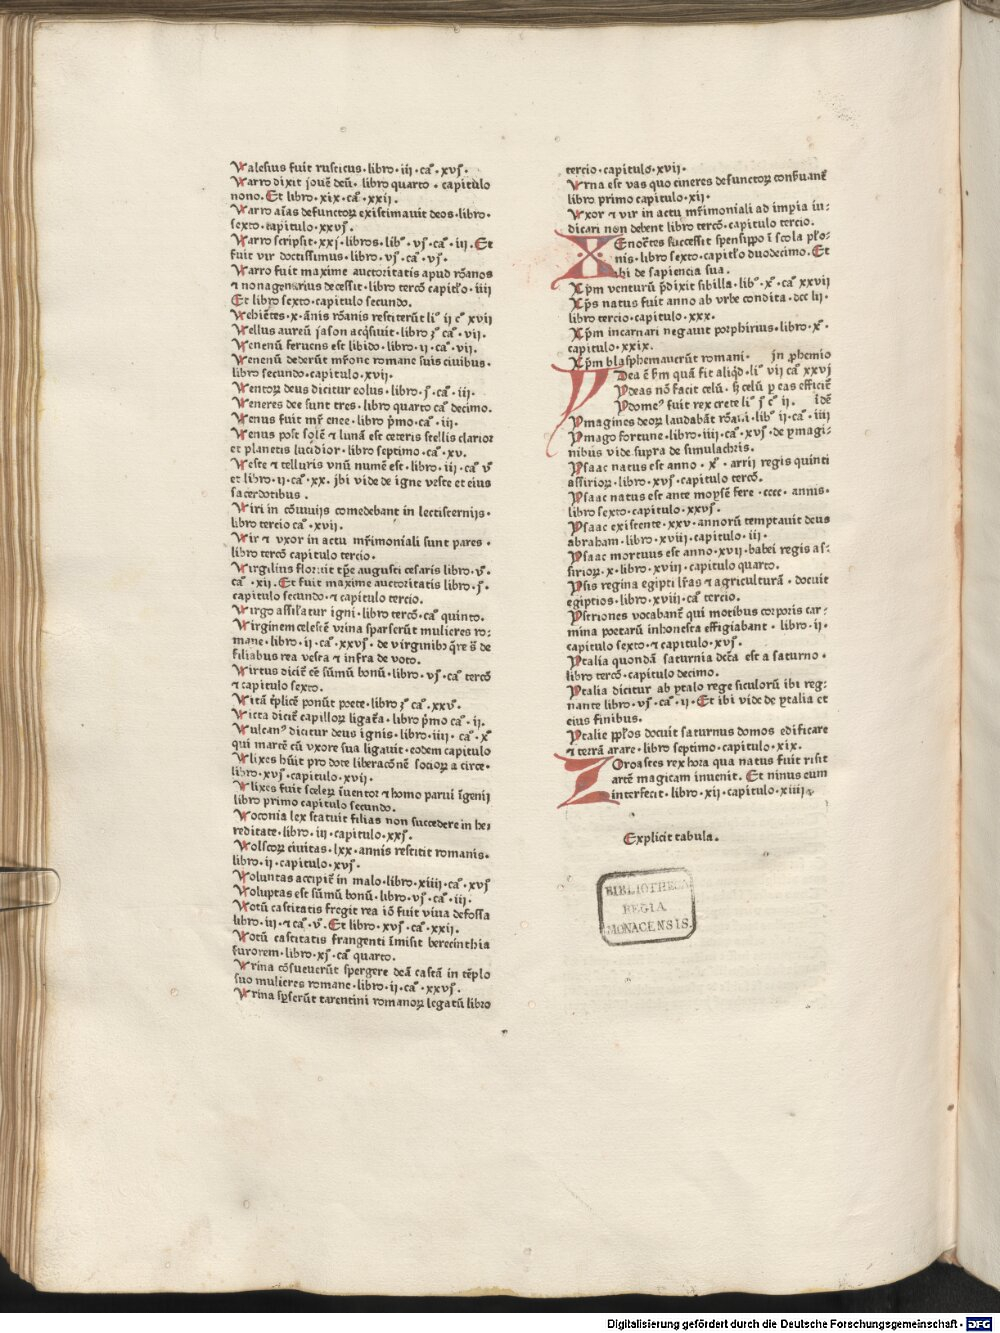 Valesius fuit rusticus·libro·iij·cā·xvj·
Varro dixit jouē deū·libro quarto·capitulo
nono. Et libro·xix·cā·xxij.
Varro aīas defunctoꝝ existimauit deos·libro·
sexto·capitulo·xxvj.
Varro scripsit·xxj·libros·lib°·vj·cā·iij·Et
fuit vir doctissimus·libro·vj·cā·vj.
Varro fuit maxime auctoritatis apud rōanos
⁊ nonagenarius decessit·libro tercō capitło·iiij
Et libro sexto·capitulo secundo.
Vehiētes·x·ānis rōanis restiterūt li° ij c° xvij
Vellus aureū jason acq̄siuit·libro ꝫ° cā·vij.
Venenū feruens est libido·libro·ij·cā·vij.
Venenū dederūt mr̄one romane suis ciuibus·
libro secundo·capitulo·xvij.
Ventoꝝ deus dicitur eolus·libro·j°·cā·iij·
Veneres dee sunt tres·libro quarto cā decimo.
Venus fuit mr̄ enee·libro p̄mo·cā·iij·
Venus post solē ⁊ lunā est ceteris stellis clarior
et planetis lucidior·libro septimo·cā·xv.
Veste ⁊ telluris vnū numē est·libro·iij·cā·v°
et libro·ij·cā·xx. jbi vide de igne veste et eius
sacerdotibus.
Viri in cōuiuijs comedebant in lectisternijs·
libro tercio cā·xvij.
Vir ⁊ vxor in actu mr̄imoniali sunt pares·
libro tercō capitulo tercio.
Virgilius floruit tp̄e augusti cesaris libro·v°·
cā·xij·Et fuit maxime auctoritatis libro·j°·
capitulo secundo·⁊ capitulo tercio.
Virgo assil'atur igni·libro tercō·cā quinto.
Virginem celestē vrina sparserūt mulieres ro:
mane·libro·ij·cā·xxvj·de virginibꝫ q̄re s̄ de
filiabus rea vesta ⁊ infra de voto.
Virtus dicit' cē sūmū bonū·libro·vj·cā tercō
⁊ capitulo sexto.
Vitā t'plicē ponūt poete·libro ꝫ° cā·xxv°.
Vitta dicit' capilloꝝ ligat'a·libro p̄mo cā·ij.
Vulcanꝰ dicitur deus ignis·libro·iiij·cā·x°
qui martē cū vxore sua ligauit·eodem capitulo
Vlixes hūit pro dote liberacōnē socioꝝ a circe·
libro·xvj·capitulo·xvij.
Vlixes fuit sceleꝝ īuentor ⁊ homo parui īgenij
libro primo capitulo secundo.
Voconia lex statuit filias non succedere in he:
reditate·libro·iij·capitulo·xxj.
Volscoꝝ ciuitas·lxx·annis restitit romanis·
libro·ij·capitulo·xvj.
Voluntas accipit' in malo·libro·xiiij·cā·xvj
Voluptas est sūmū bonū·libro·vj·cā·iij·
Votū castitatis fregit rea iō fuit viua defossa
libro·iij·⁊ cā·v°·Et libro·xvj·cā·xxij.
Votū castitatis frangenti īmisit berecinthia
furorem·libro·xj·cā quarto.
Vrina cōsueuerūt spergere deā castā in tēplo
suo mulieres romane·libro·ij·cā·xxvj.
Vrina sp̄serūt tarentini romanoꝝ legatū libro
tercio·capitulo·xvij·
Vrna est vas quo cineres defunctoꝝ conf'uant'
libro primo capitulo·xij·
Vxor ⁊ vir in actu mr̄imoniali ad impia iu:
dicari non debent libro tercō·capitulo tercio.
XEnocrates successit speusippo ī scola plo:
nis·libro sexto·capitło duodecimo. Et
ibi de sapiencia sua.
Xp̄m venturū p̄dixit sibilla·lib° x° cā xxvij
Xp̄s natus fuit anno ab vrbe condita·dcc lij·
libro tercio·capitulo·xxx.
Xp̄m incarnari negauit porphirius·libro·x°·
capitulo·xxix.
Xp̄m blasphemauerūt romani· jn ꝓhemio
YDea ē bm̄ quā fit aliq̄d·li° vij cā xxvj
Ydeas nō facit celū·sꝫ celū ꝑ eas efficit'
Ydomeꝰ fuit rex crete li° j° c° ij. īdē
Ymagines deoꝝ laudabāt rōani·lib° ij·cā·iiij
Ymago fortune·libro·iiij·cā·xvj·de ymagi:
nibus vide supra de simulachris.
Ysaac natus est anno·x°·arrij regis quinti
assirioꝝ·libro·xvj·capitulo tercō.
Ysaac natus est ante moysē fere·cccc·annis·
libro sexto·capitulo·xxvj.
Ysaac existente·xxv·annorū temptauit deus
abraham·libro·xviij·capitulo·iij·
Ysaac mortuus est anno·xvij·balei regis as:
sirioꝝ·x·libro·xviij·capitulo quarto.
Ysis regina egipti lr̄as ⁊ agriculturā·docuit
egiptios·libro·xviij·cā tercio.
Ystriones vocabant' qui motibus corporis car:
mina poetarū inhonesta effigiabant·libro·ij·
capitulo sexto·⁊ capitulo·xvj.
Ytalia quondā saturnia dcā est a saturno·
libro tercō·capitulo decimo.
Ytalia dicitur ab ytalo rege siculorū ibi reg:
nante libro·vj·cā·ij·Et ibi vide de ytalia et
eius finibus.
Ytalie pplos docuit saturnus domos edificare
⁊ terrā arare·libro septimo·capitulo·xix.
ZOroastes rex hora qua natus fuit risit
artē magicam inuenit. Et ninus eum
interfecit·libro·xij·capitulo·xiiij.
Explicit tabula.
BIBLIOTHECA
REGIA
MONACENSIS.
Digitalisierung gefördert durch die Deutsche Forschungsgemeinschaft - DFG